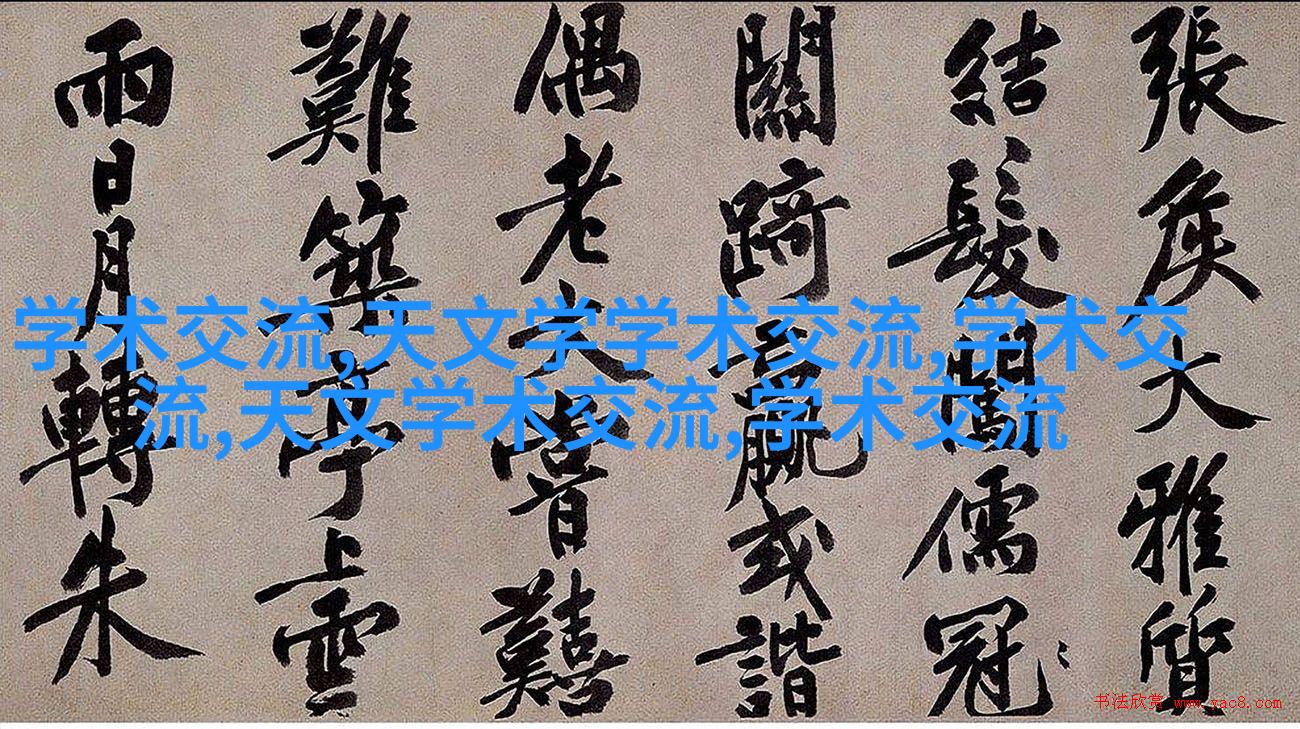 張侯大雅質
結髮闖儒冠
關踦贏或諧
偶老大嘗囏
難築亭上雲
雨日月轉朱
学术交流,天文学学术交流,学术交
流,天文学术交流,学术交流
书法欣赏 www.yac8.com